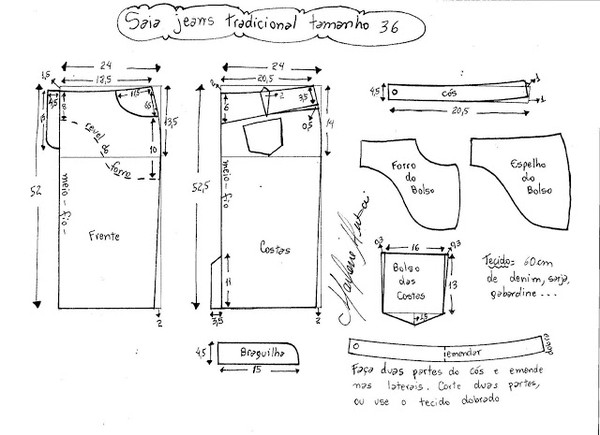 Saia jeans tradicional tamanho 36
24
18,5
1,5
4,5
11,5
13,5
10
revel do forro
meio-fio
52
Frente
2
24
20,5
2
3,5
0,5
14
meio-fio
52,5
Costas
11
3,5
2
4,5
cós
1
1
20,5
Forro
do
Bolso
Espelho
do
Bolso
0,3
16
0,3
Bolso
das
Costas
13
1,5
Tecido: 60cm
de denim, sarja,
gabardine...
4,5
Braguilha
15
emendar
dobra
Faça duas partes do cós e emende
nas laterais. Corte duas partes,
ou use o tecido dobrado